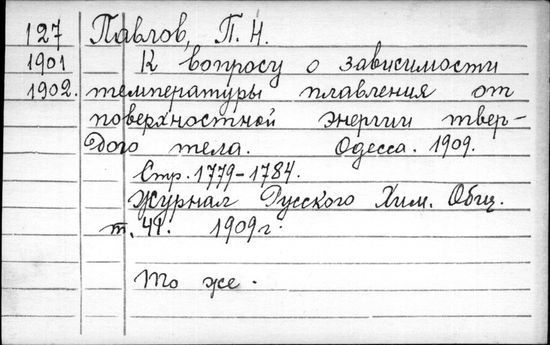 127 Павлов, П. Н.
1901 К вопросу о зависимости
1902. температуры плавления от
поверхностной энергии твер-
дого тела. Одесса. 1909.
Стр. 1779-1784.
Журнал Русского Хим. Общ.
т. 41. 1909 г.
То же.